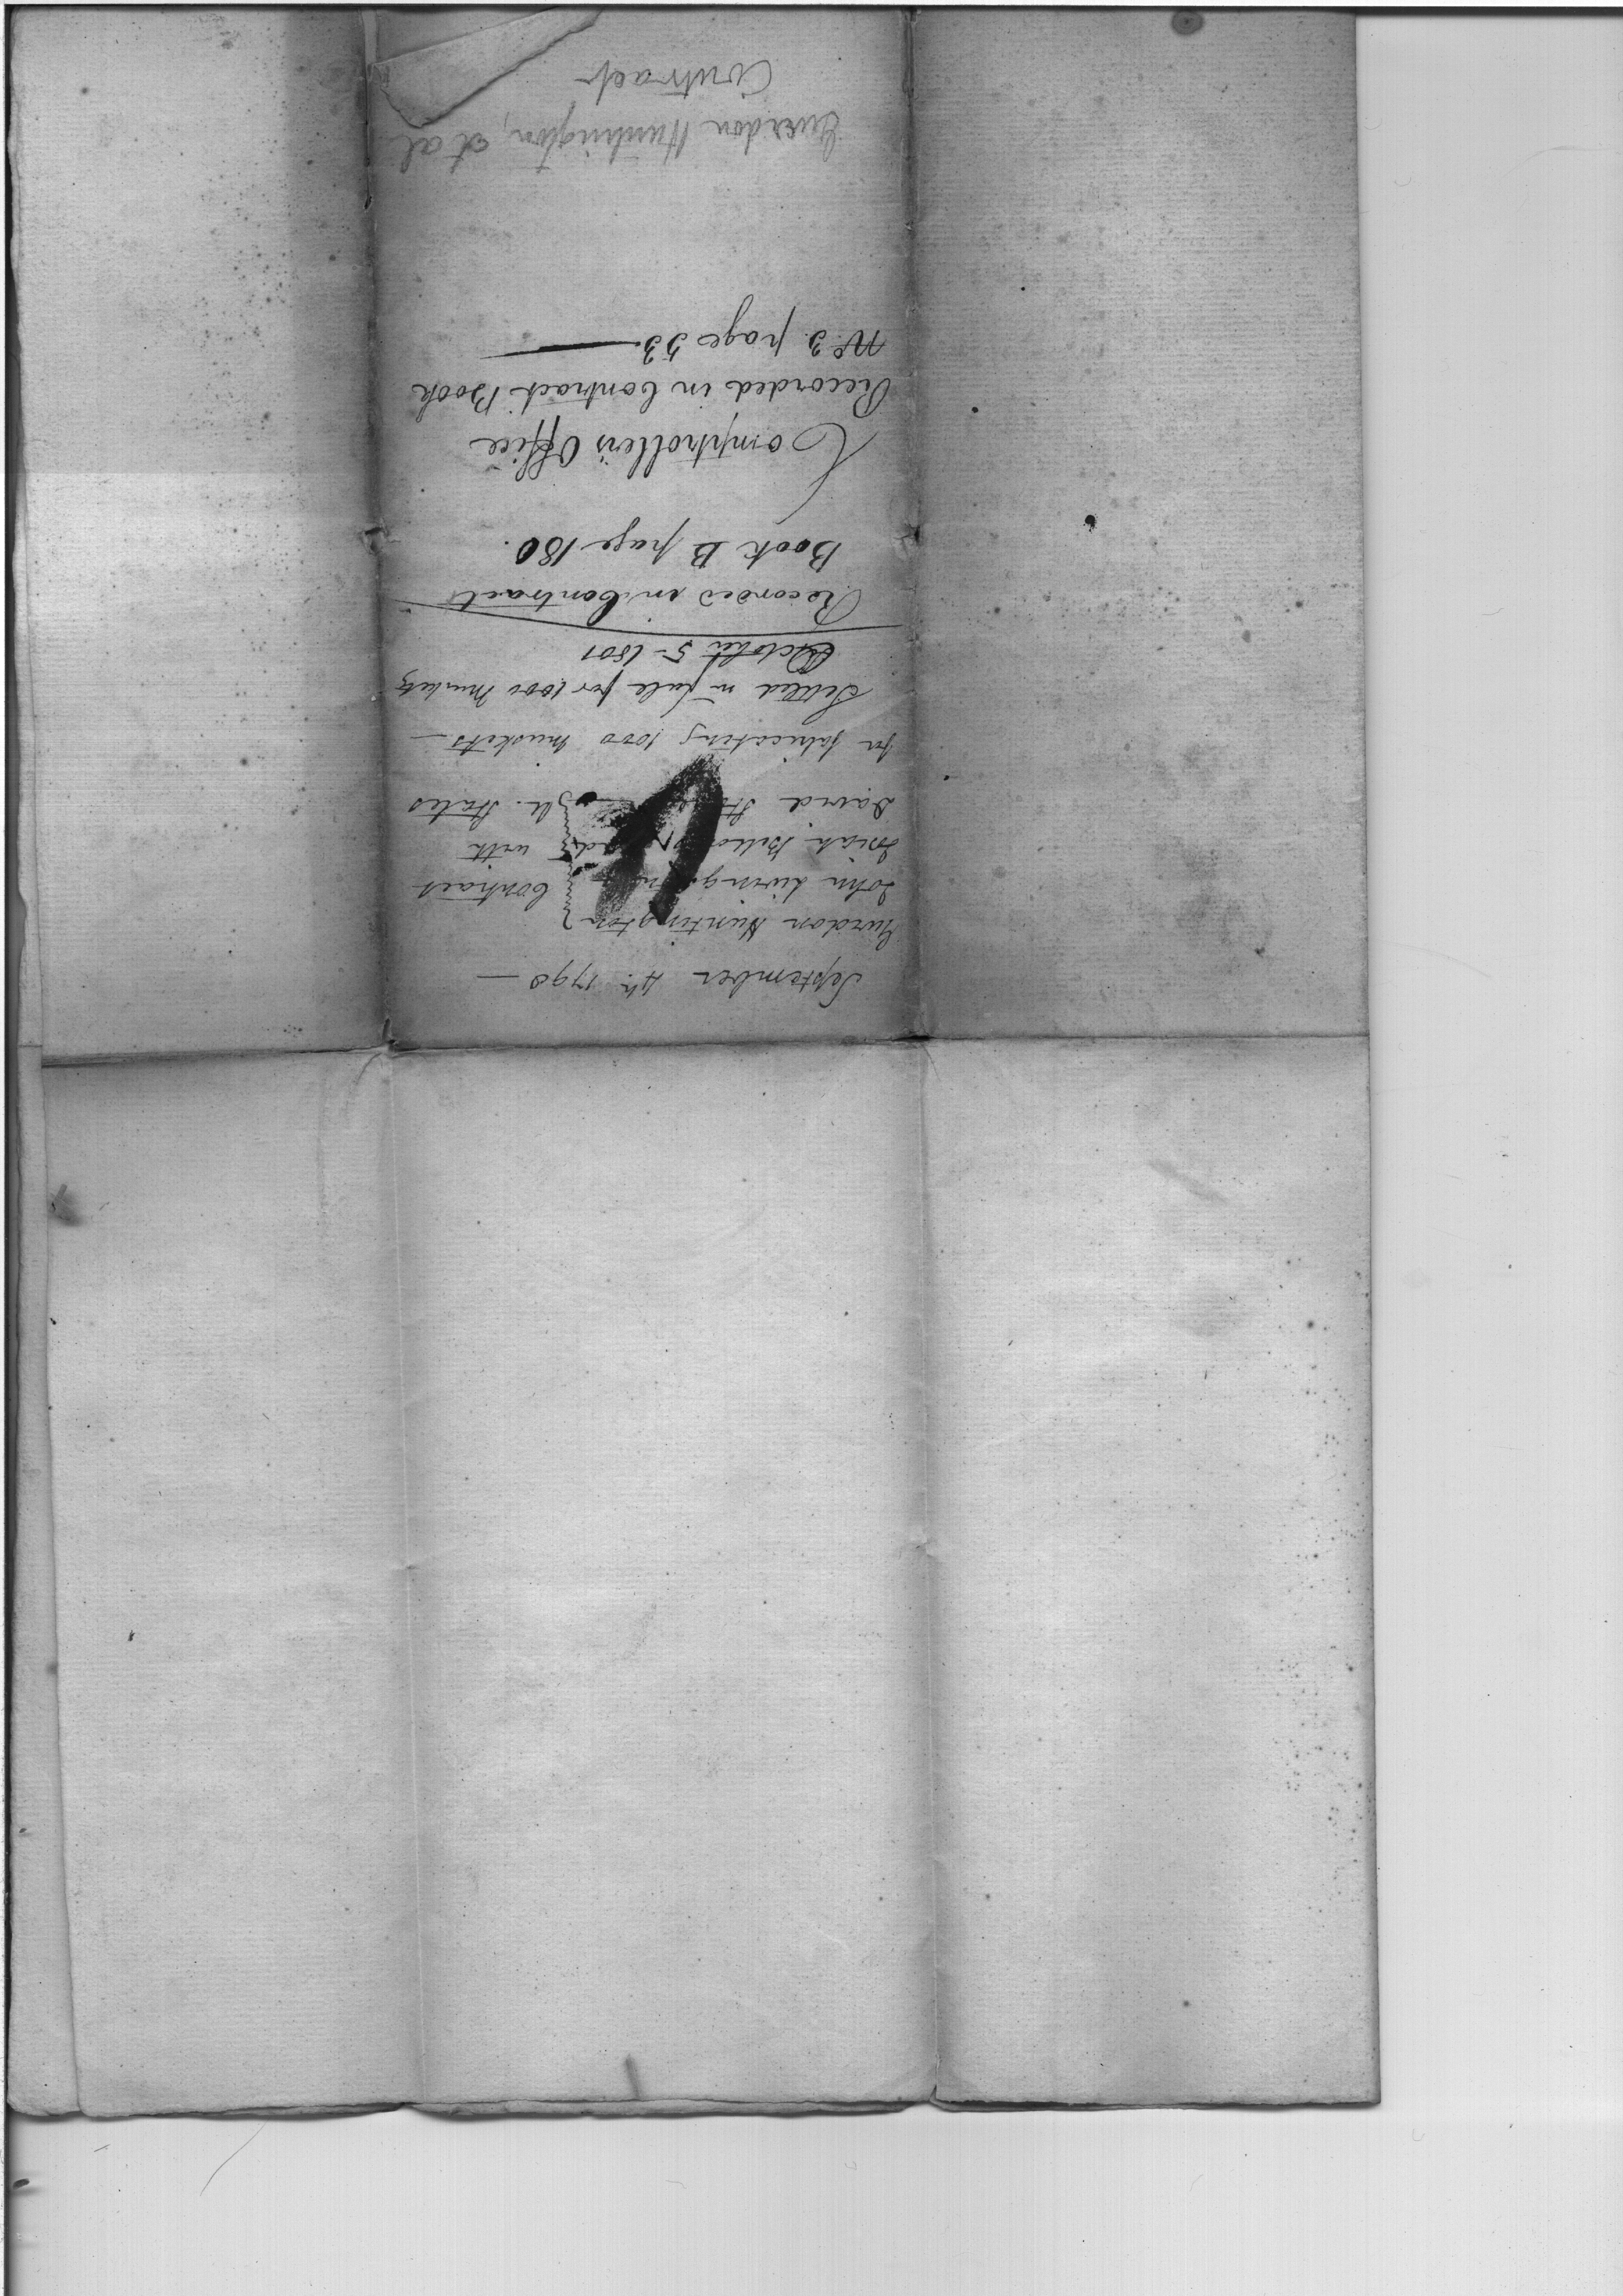 September 4th. 1798 —
Gurdon Huntington
John Livingston Contract
Josiah Bellows and with
David Stone U. States
for fabricating 1000 muskets —
Settled in full for 1000 Muskets
October 5 - 1801
Recorded in Contract
Book B page 180.
Comptroller's Office
Recorded in Contract Book
No. 3. page 53.
Guerdon Huntington, et al
Contract